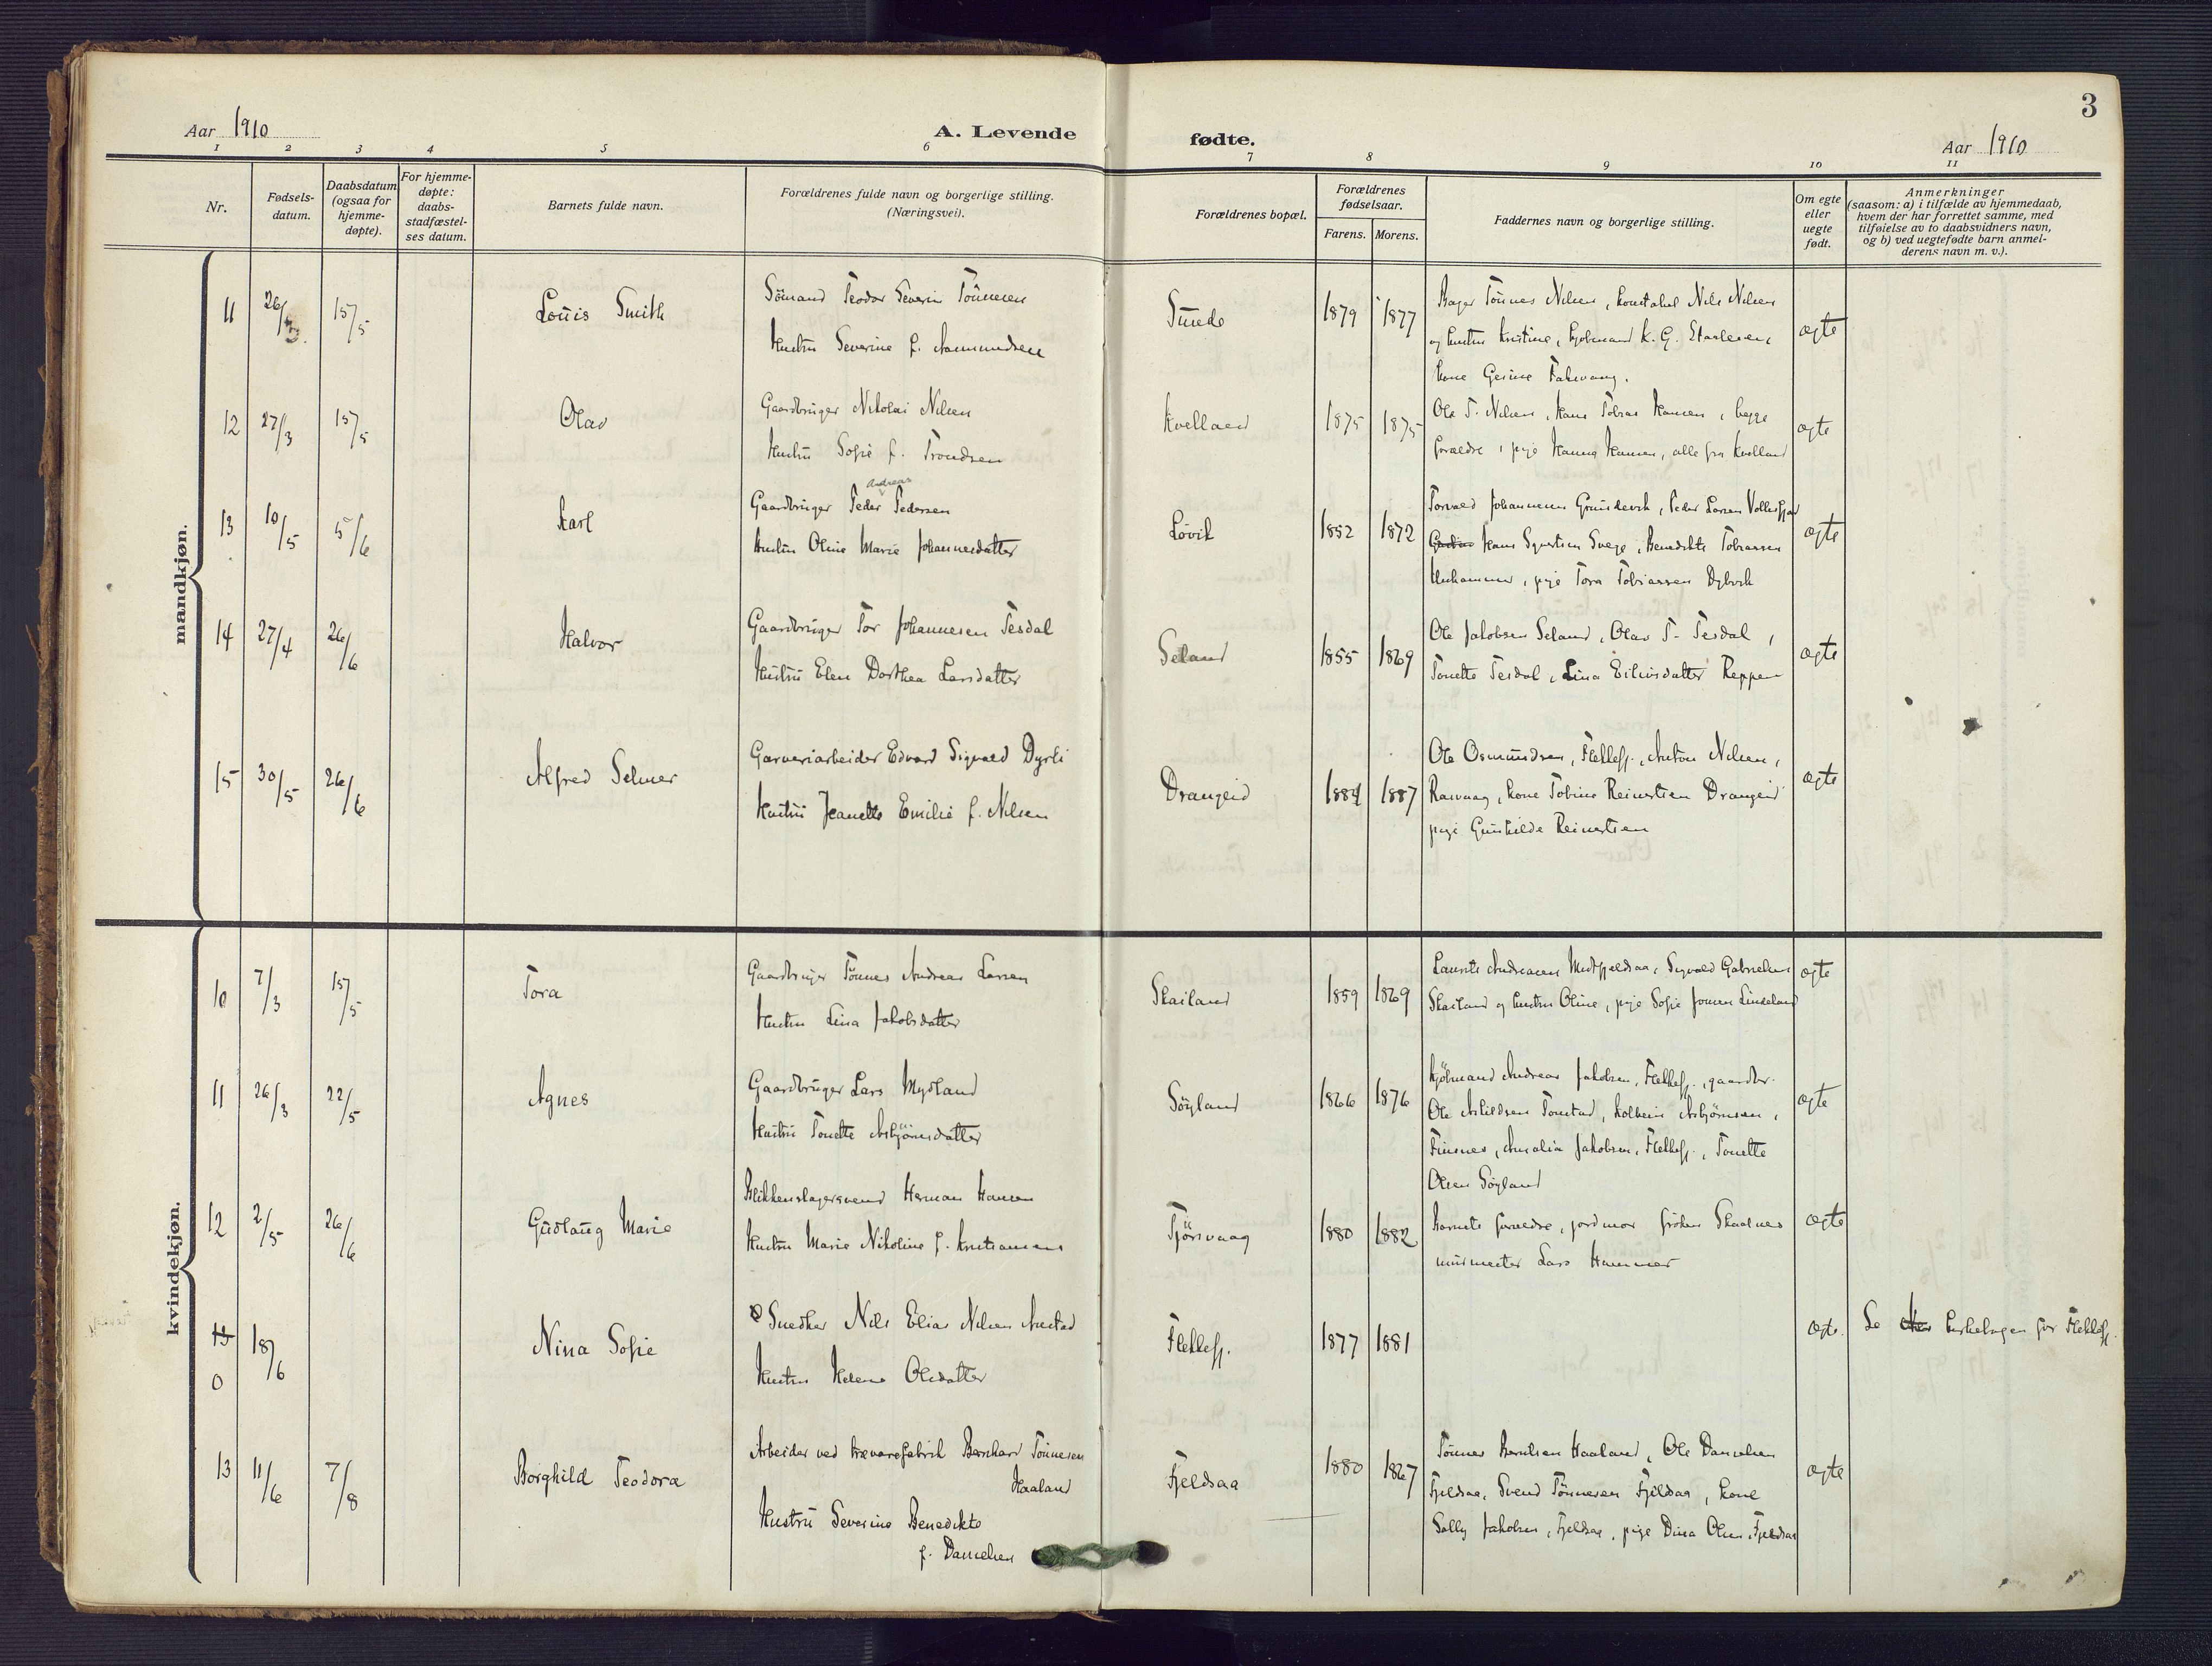 3
Aar 1910
A. Levende
fødte.
Aar 1910
1 2 3 4 5 6 7 8 9 10 11
Nr.
Fødsels-
datum.
Daabsdatum
(ogsaa for
hjemme-
døpte).
For hjemme-
døpte:
daabs-
stadfæstel-
ses datum.
Barnets fulde navn.
Forældrenes fulde navn og borgerlige stilling.
(Næringsvei).
Forældrenes bopæl.
Forældrenes
fødselsaar.
Farens. Morens.
Faddernes navn og borgerlige stilling.
Om egte
eller
uegte
født.
Anmerkninger
(saasom: a) i tilfælde av hjemmedaab,
hvem der har forrettet samme, med
tilføielse av to daabsvidners navn,
og b) ved uegtefødte barn anmel-
derens navn m. v.).
mandkjøn.
11 26/3. 15/5 Louis Smith
Sömand Teodor Severin Tönnesen
Hustru Severine f. Aamundsen
Smedo 1879 1877
Bager Tönnes Nilsen, konstabel Nils Nilsen
og hustru Kristine, kjøbmand K. G.
kone Gesine
egte
12 27/3 15/5 Olav
Gaardbruger Nikolai Nilsen
Hustru Sofie f. Trondsen
Kvelland 1875 1875
Ole T. Nilsen, Hans Tobias Hansen, begge
forældre, pige Hanna Hansen, alle fra Kvelland
egte
13 10/5 5/6 Karl
Andreas
Gaardbruger Peder Pedersen
Hustru Oline Marie Johannesdatter
Løvik 1852 1872
Torvald Johannesen Grundevik, Peder Larsen
Hans Syvertsen Svege, Benedikte Tobiassen
pige Tora Tobiassen Dybvik
egte
14 27/4 26/6 Halvor
Gaardbruger Tor Johannesen Tesdal
Hustru Elen Dorthea Larsdatter
Seland 1855 1869
Ole Jakobsen Seland, Olav T. Tesdal,
Tonette Tesdal, Lina Eilivsdatter Reppen
egte
15 30/5 26/6 Alfred Selmer
Garveriarbeider Edvard Sigvald Dyrli
Hustru Jeanette Emilie f. Nilsen
Drangeid 1884 1887
Ole Osmundsen, Flekkefj., Anton Nilsen,
Rasvaag, kone Tobine Reinertsen Drangeid
pige Gunhilde Reinertsen
egte
kvindekjøn.
10 7/3 15/5 Tora
Gaardbruger Tönnes Andreas Larsen
Hustru Lina Jakobsdatter
Skailand 1859 1869
Laurits Andreasen Midtfjeldsaa, Sigvald Gabrielsen
Skailand og hustru Oline, pige Sofie Jonsen Lindeland
egte
11 26/3 22/5 Agnes
Gaardbruger Lars Mydland
Hustru Tonette Asbjörnsdatter
Söyland 1866 1876
Kjöbmand Andreas Jakobsen, Flekkefj., gaardbr.
Ole Arildsen Tonstad, Kolbein Asbjörnsen,
Finsnes, Amalia Jakobsen, Flekkefj., Tonette
Olsen Söyland
egte
12 2/5 26/6 Gudlaug Marie
Blikkenslagersvend Herman Hansen
Hustru Marie Nikoline f. Kristiansen
Tjörsvaag 1880 1882
Barnets forældre, jordmor frøken Skadnes
murmester Lars Hammer
egte
13
0 18/6 Nina Sofie
Snedker Nils Elias Nilsen Austad
Hustru Helene Olsdatter
Flekkefj. 1877 1881
egte. Se kirkebogen for Flekkefj.
13 11/6 7/8 Borghild Teodora
Arbeider ved trævarefabrik Bernhard Tönnesen
Haaland
Hustru Severine Benedikte
f. Danielsen
Fjeldsaa 1880 1867
Tönnes Berntsen Haaland, Ole Danielsen
Fjeldsaa, Svend Tönnesen Fjeldsaa, kone
Sally Jakobsen, Fjeldsaa, pige Dina Olsen, Fjeldsaa
egte